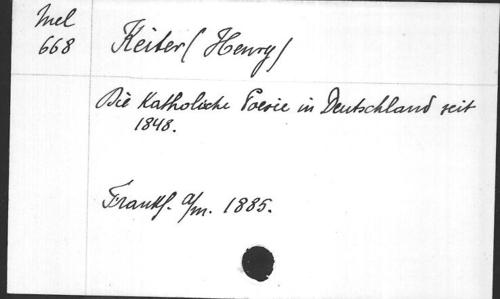 Mel
668
Keiter (Henry)
Die Katholische Poesie in Deutschland seit
1848.
Frankf. a/m. 1885.